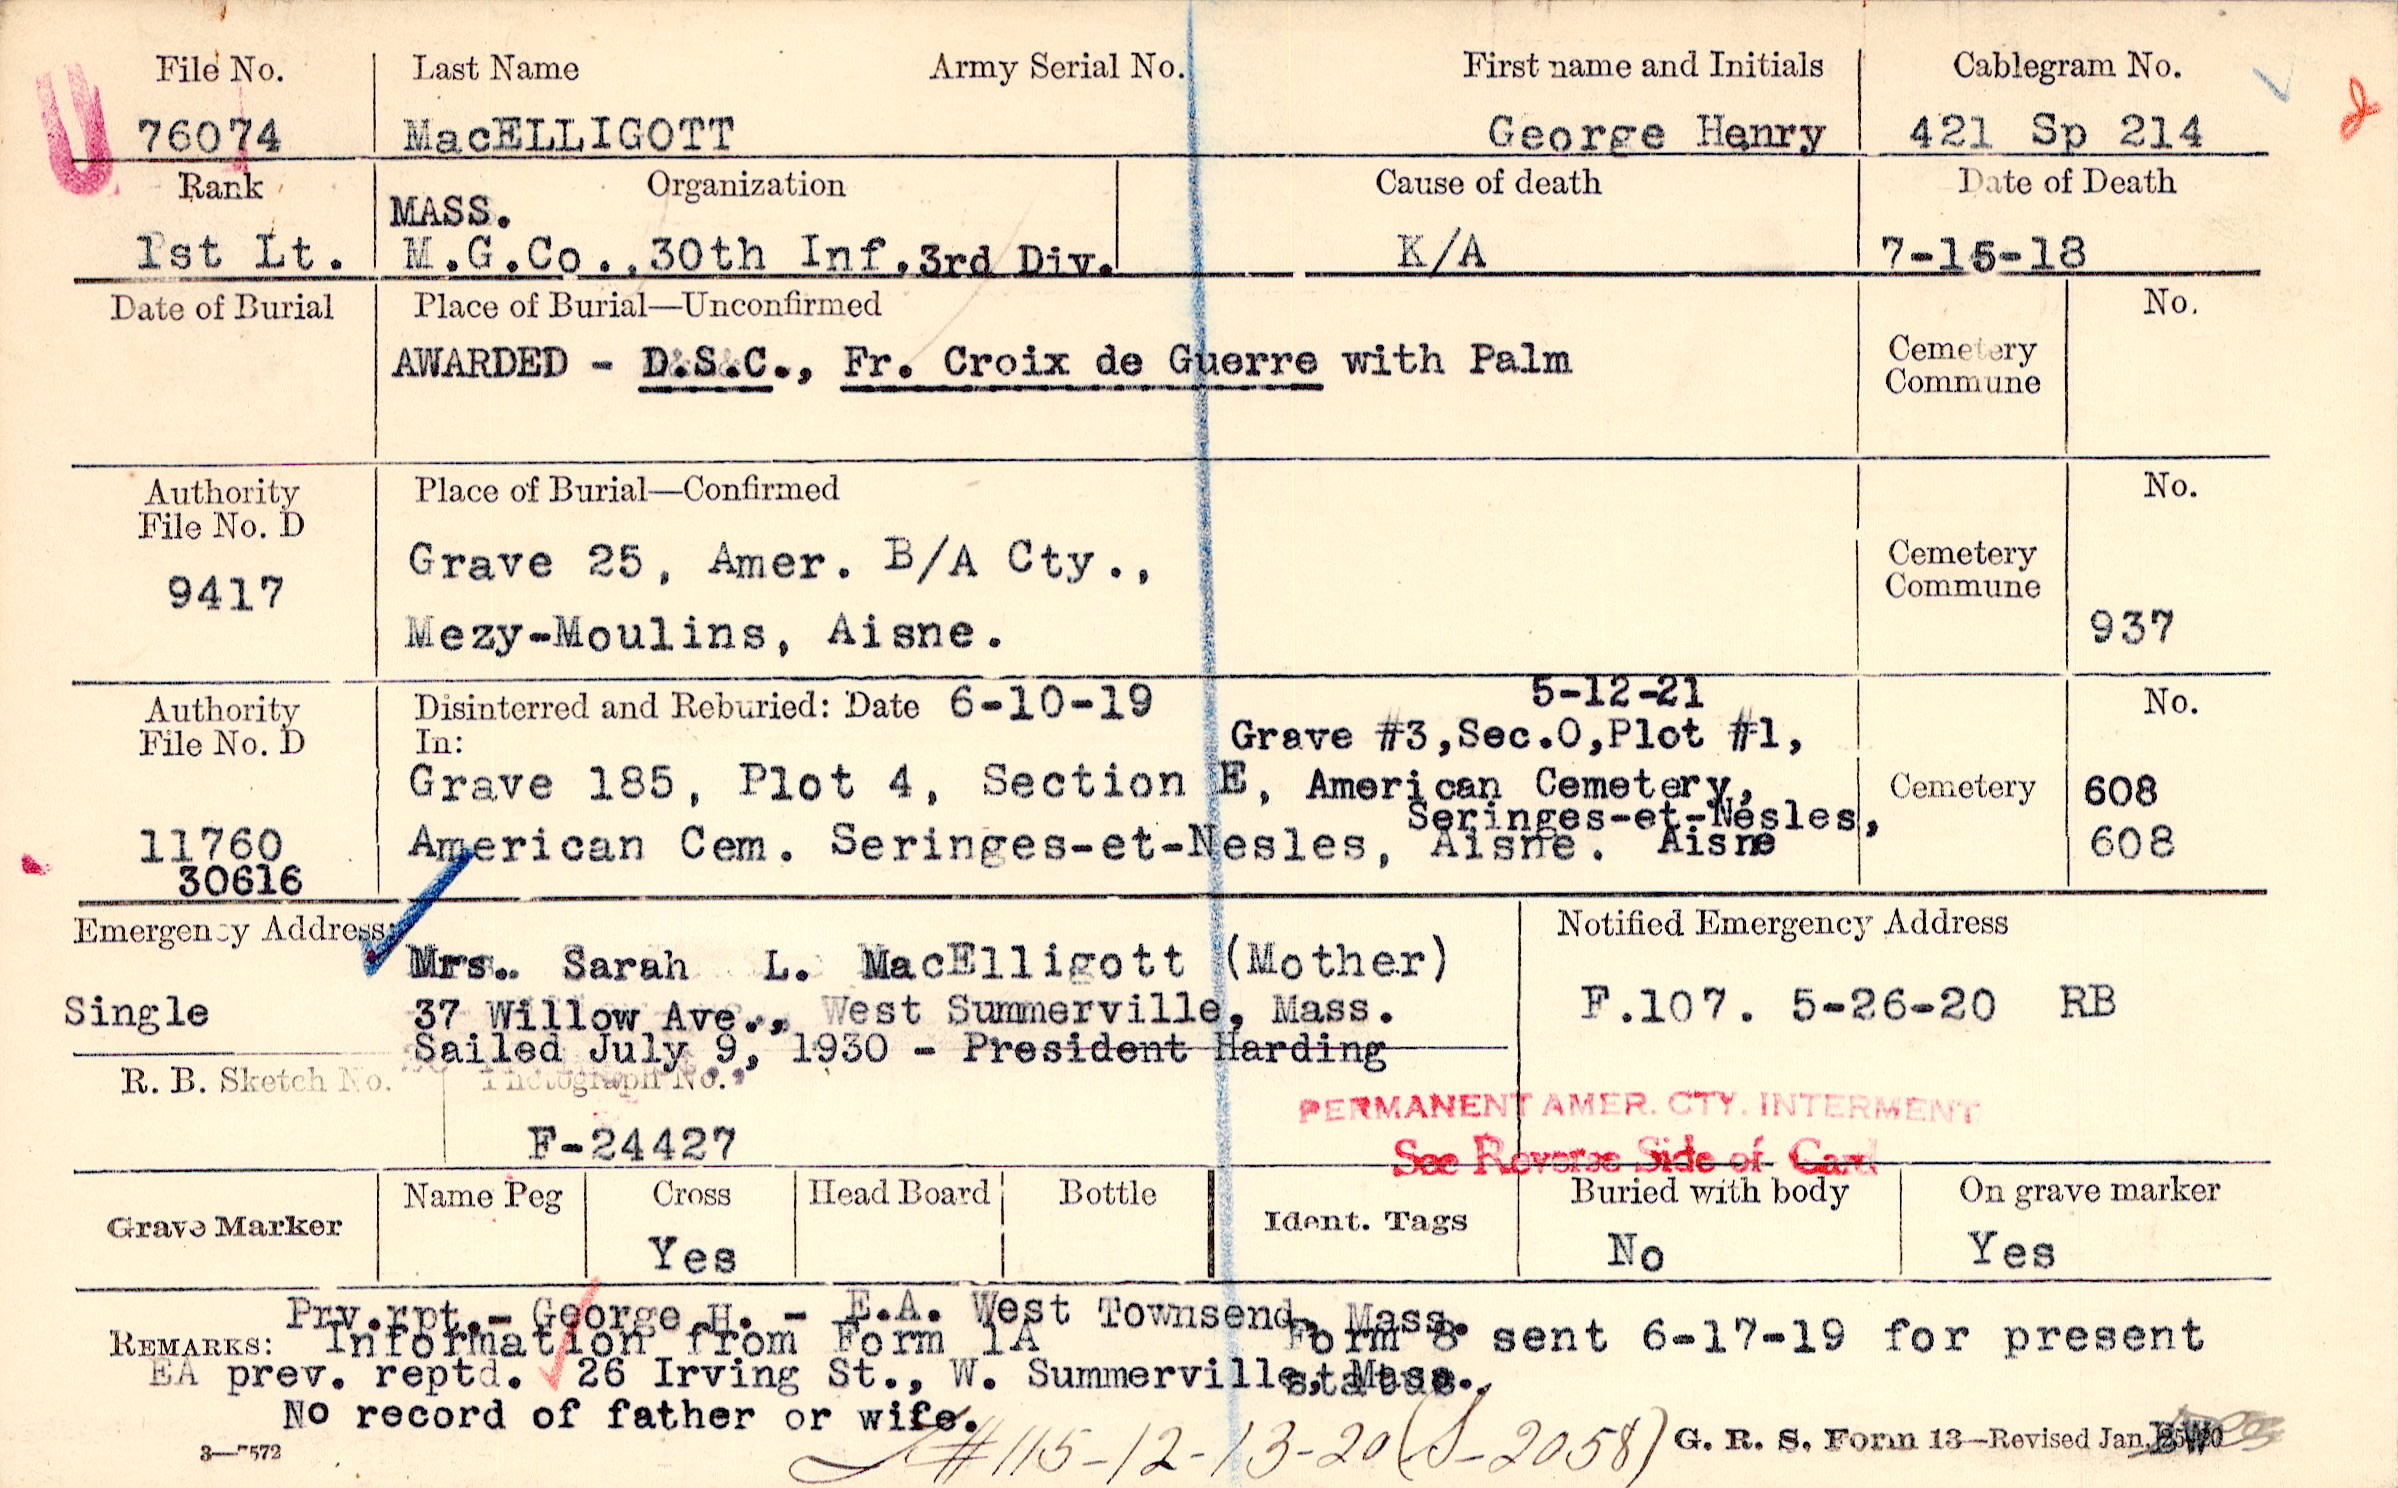 File No. Last Name Army Serial No. First name and Initials Cablegram No.
76074 MacELLIGOTT George Henry 421 Sp 214
Rank Organization Cause of death Date of Death
MASS.
1st Lt. M.G.Co., 30th Inf. 3rd Div. K/A 7-15-18
Date of Burial Place of Burial—Unconfirmed No.
AWARDED - D.S.C., Fr. Croix de Guerre with Palm
Cemetery
Commune
Authority Place of Burial—Confirmed No.
File No. D
9417 Grave 25, Amer. B/A Cty.,
Cemetery
Commune
Mezy-Moulins, Aisne. 937
5-12-21
Authority Disinterred and Reburied: Date 6-10-19 No.
File No. D In: Grave #3,Sec.O,Plot #1,
Grave 185, Plot 4, Section E, American Cemetery, Cemetery 608
Seringes-et-Nesles,
11760 American Cem. Seringes-et-Nesles, Aisne. Aisne 608
30616
Emergency Address: Notified Emergency Address
Mrs. Sarah L. MacElligott (Mother)
Single 37 Willow Ave., West Summerville, Mass. F.107. 5-26-20 RB
Sailed July 9, 1930 - President Harding
R. B. Sketch No. Photograph No.
PERMANENT AMER. CTY. INTERMENT
F-24427
See Reverse Side of Card
Grave Marker Name Peg Cross Head Board Bottle Ident. Tags Buried with body On grave marker
Yes No Yes
Prv.rpt.- George H. - E.A. West Townsend, Mass.
REMARKS: Information from Form 1A Form 8 sent 6-17-19 for present
EA prev. reptd. 26 Irving St., W. Summerville, Mass. status.
No record of father or wife.
#115-12-13-20 (S-2058)
3—7572 G. R. S. Form 13—Revised Jan.